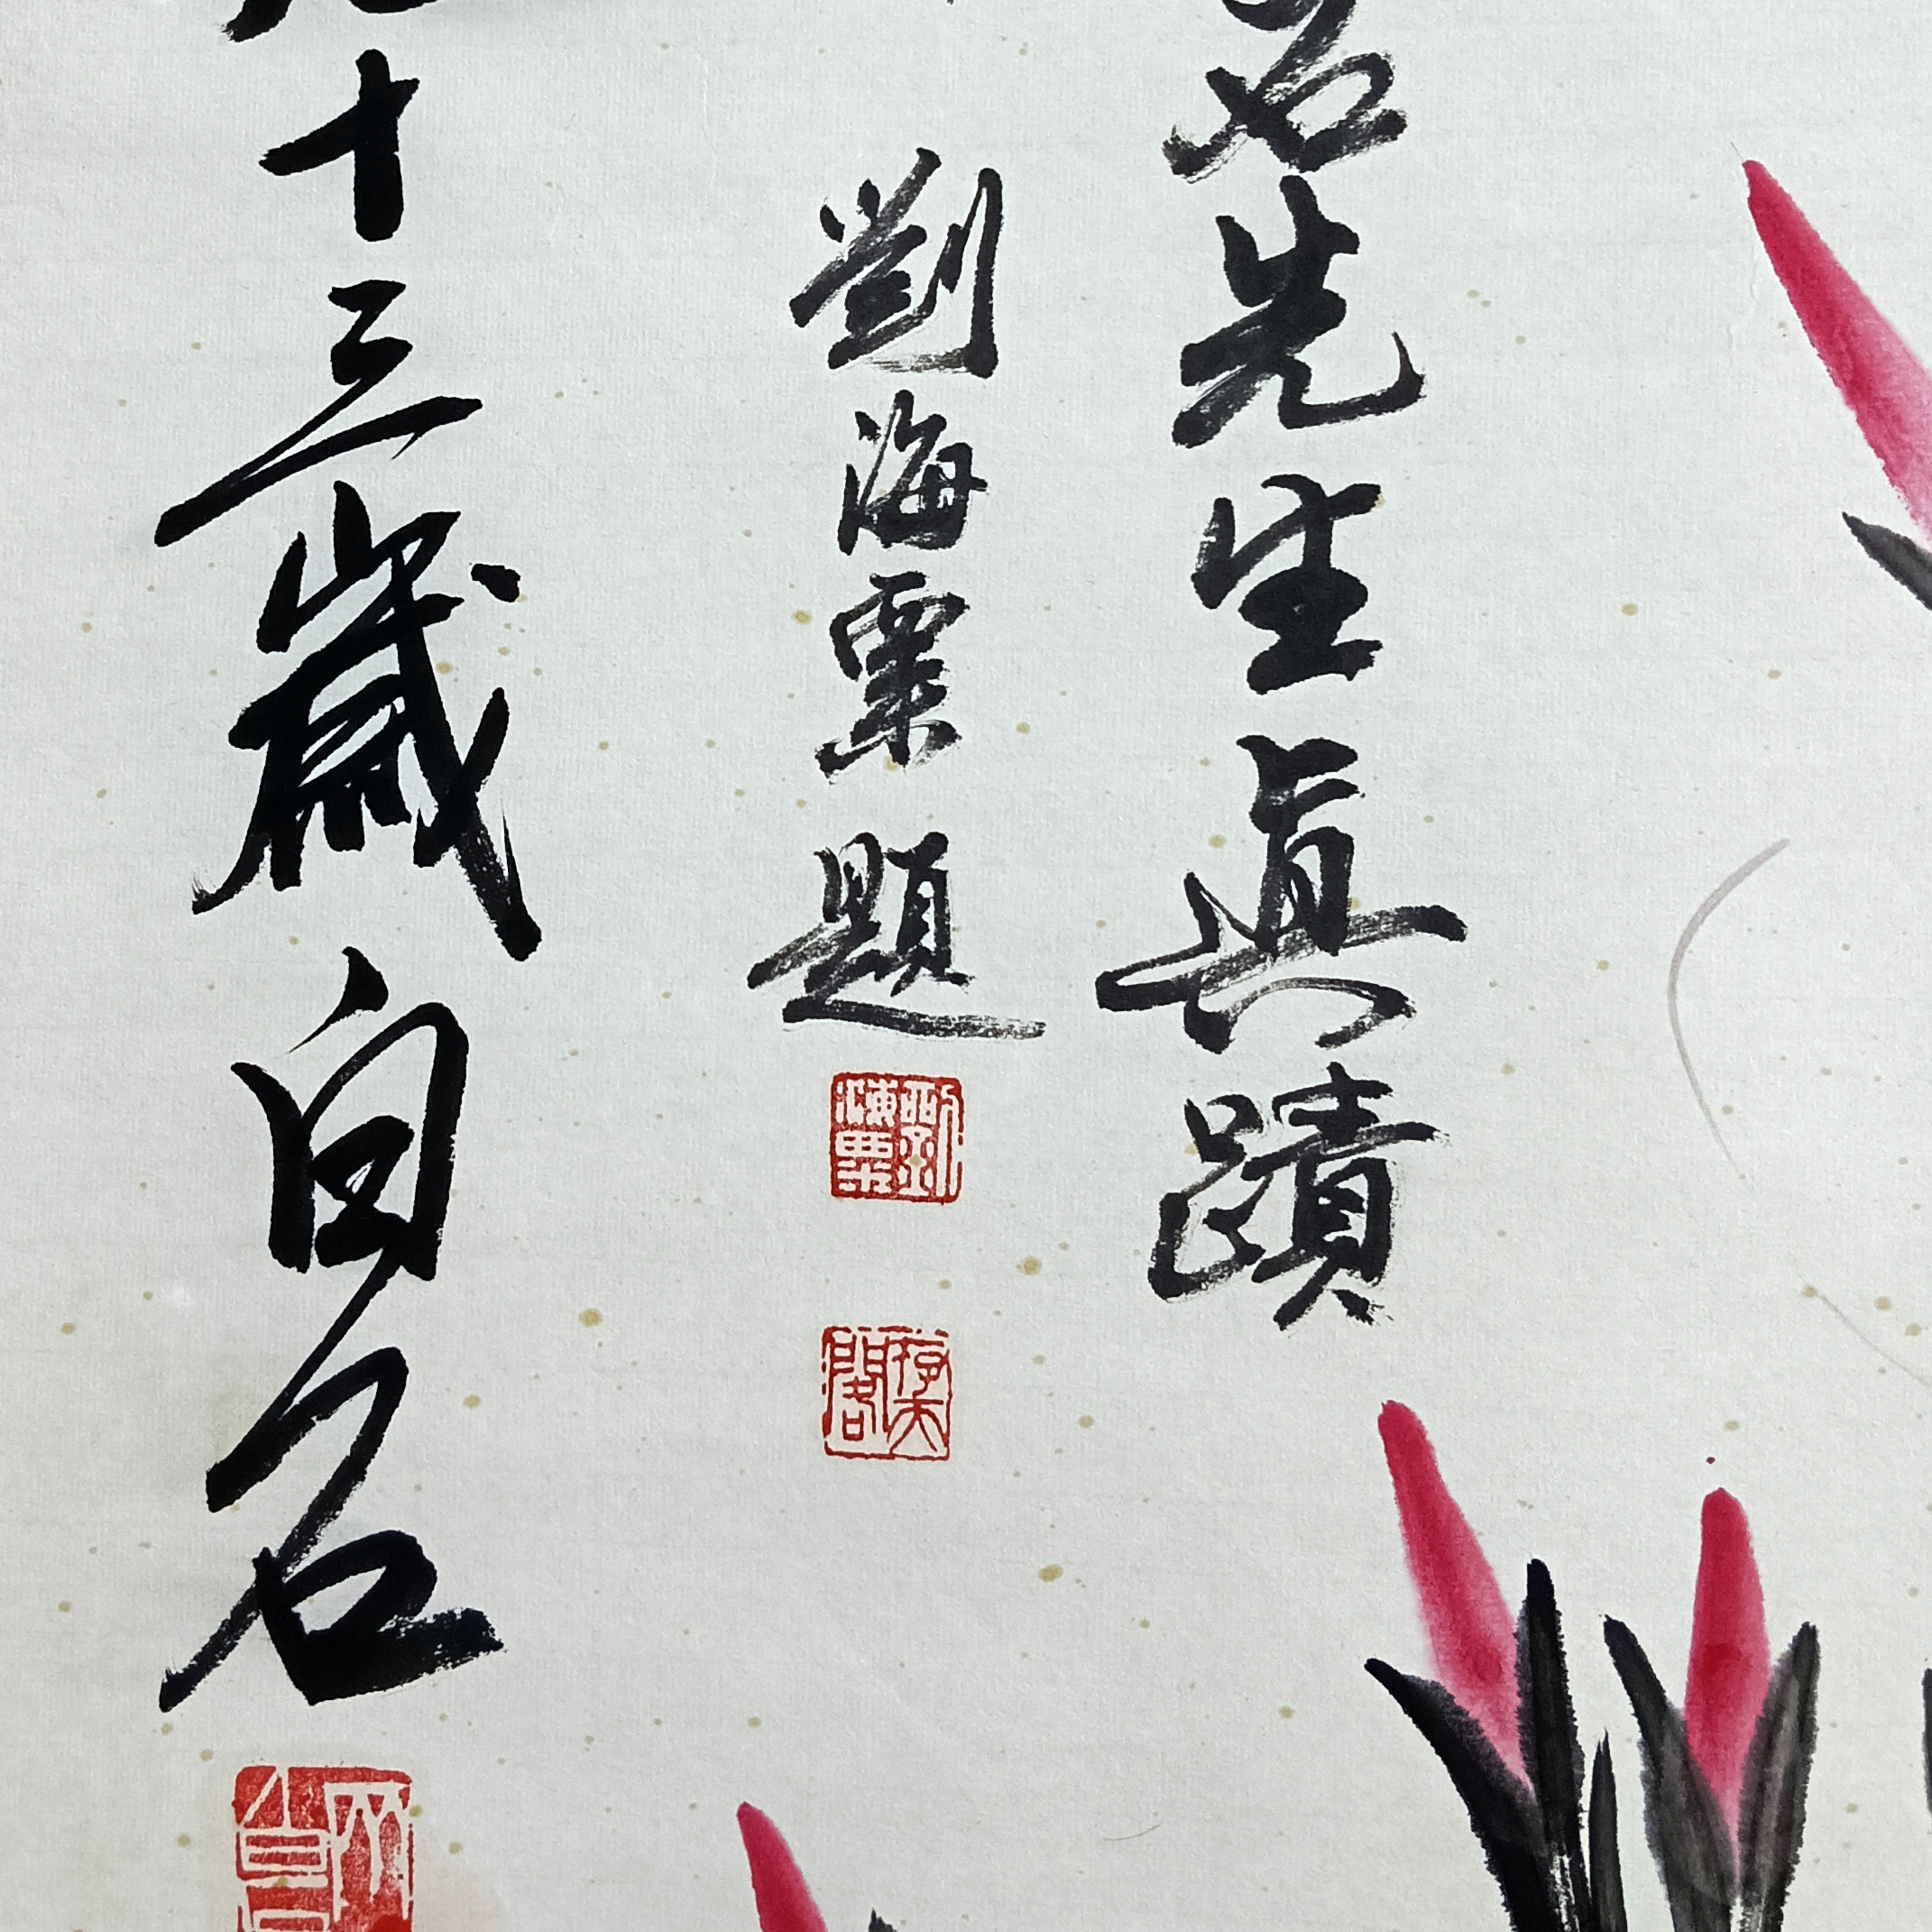 石先生真蹟
劉海粟題
劉海粟
存天閣
十三歲白石